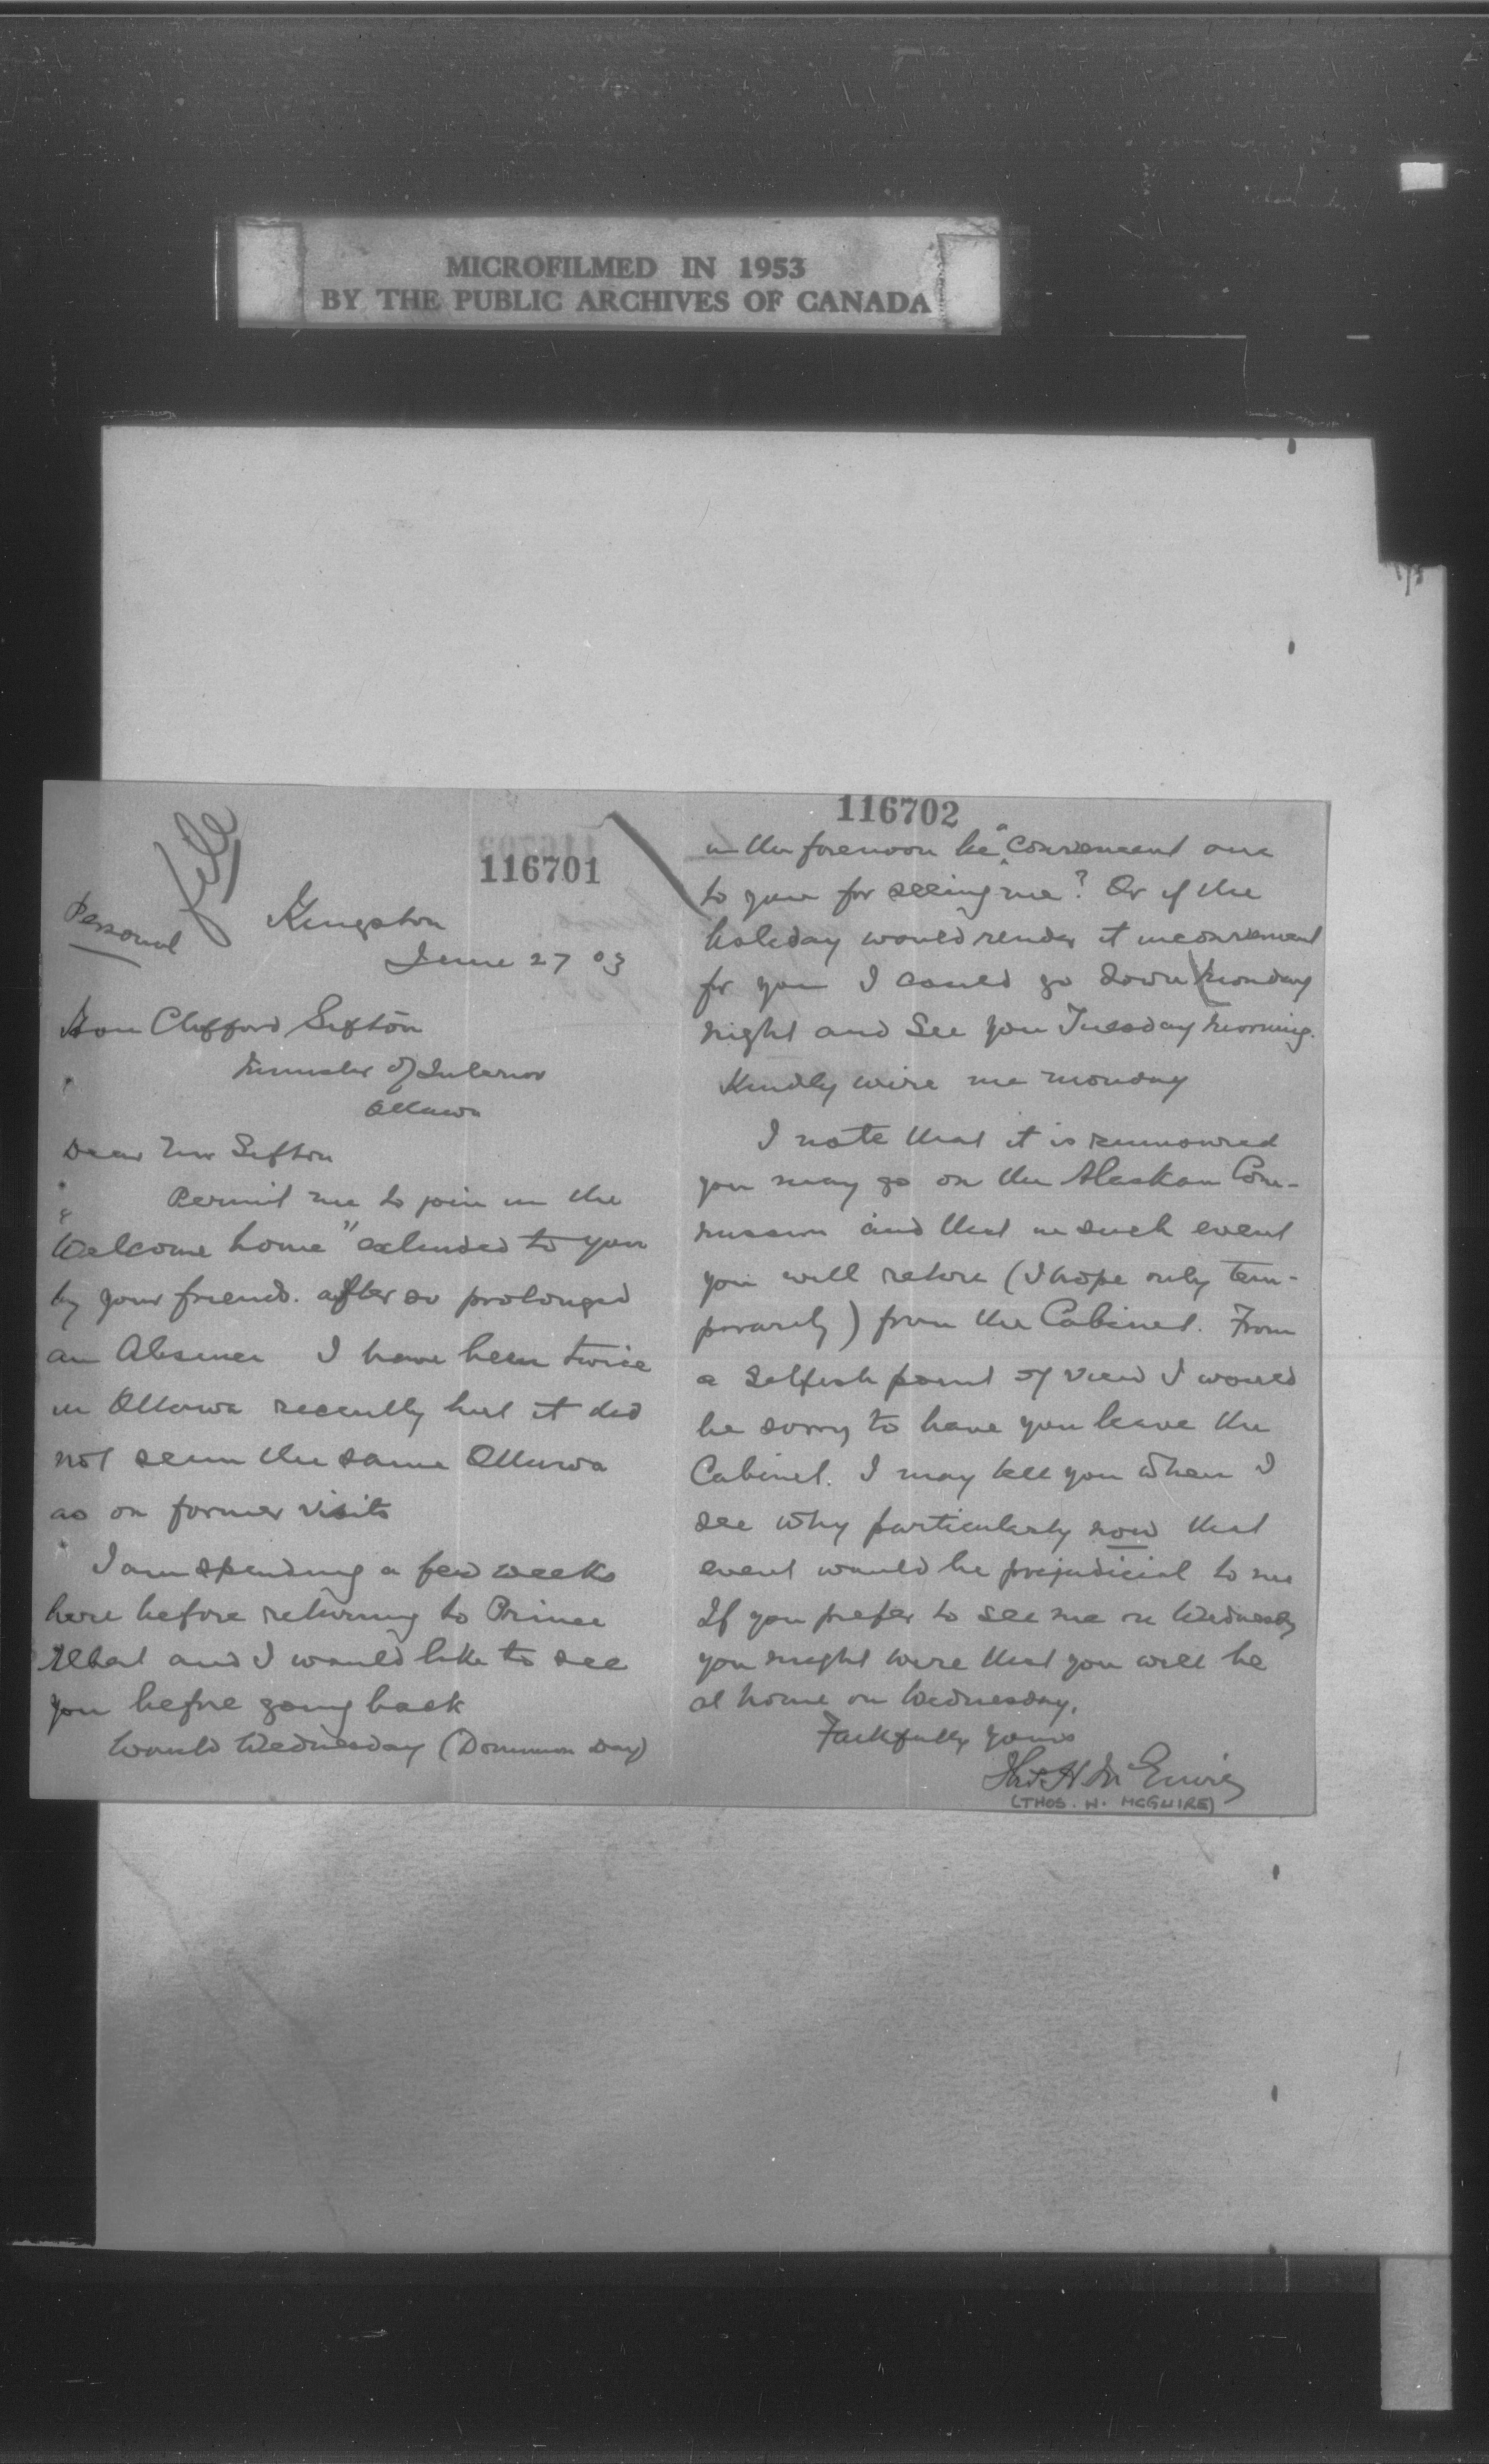 MICROFILMED IN 1953
BY THE PUBLIC ARCHIVES OF CANADA
116701
Personal
file
Kingston
June 27 03
Hon Clifford Sifton
Minister of Interior
Ottawa
Dear Mr Sifton
Permit me to join in the
"Welcome home" extended to you
by your friends. after so prolonged
an Absence I have been twice
in Ottawa recently but it did
not seem the same Ottawa
as on former visits
I am spending a few weeks
here before returning to Prince
Albert and I would like to see
you before going back
Would Wednesday (Dominion Day)
116702
in the forenoon be a convenient one
to you for seeing me? Or if the
holiday would render it inconvenient
for you I could go down Monday
night and See you Tuesday morning.
Kindly wire me monday
I note that it is rumoured
you may go on the Alaskan Com-
mission and that in such event
you will retire (I hope only tem-
porarily) from the Cabinet. From
a Selfish point of view I would
be sorry to have you leave the
Cabinet. I may tell you when I
see why particularly now that
event would be prejudicial to me
If you prefer to see me on Wednesday
you might wire that you will be
at home on Wednesday.
Faithfully yours
Thos. H McGuire
(THOS. H. MCGUIRE)